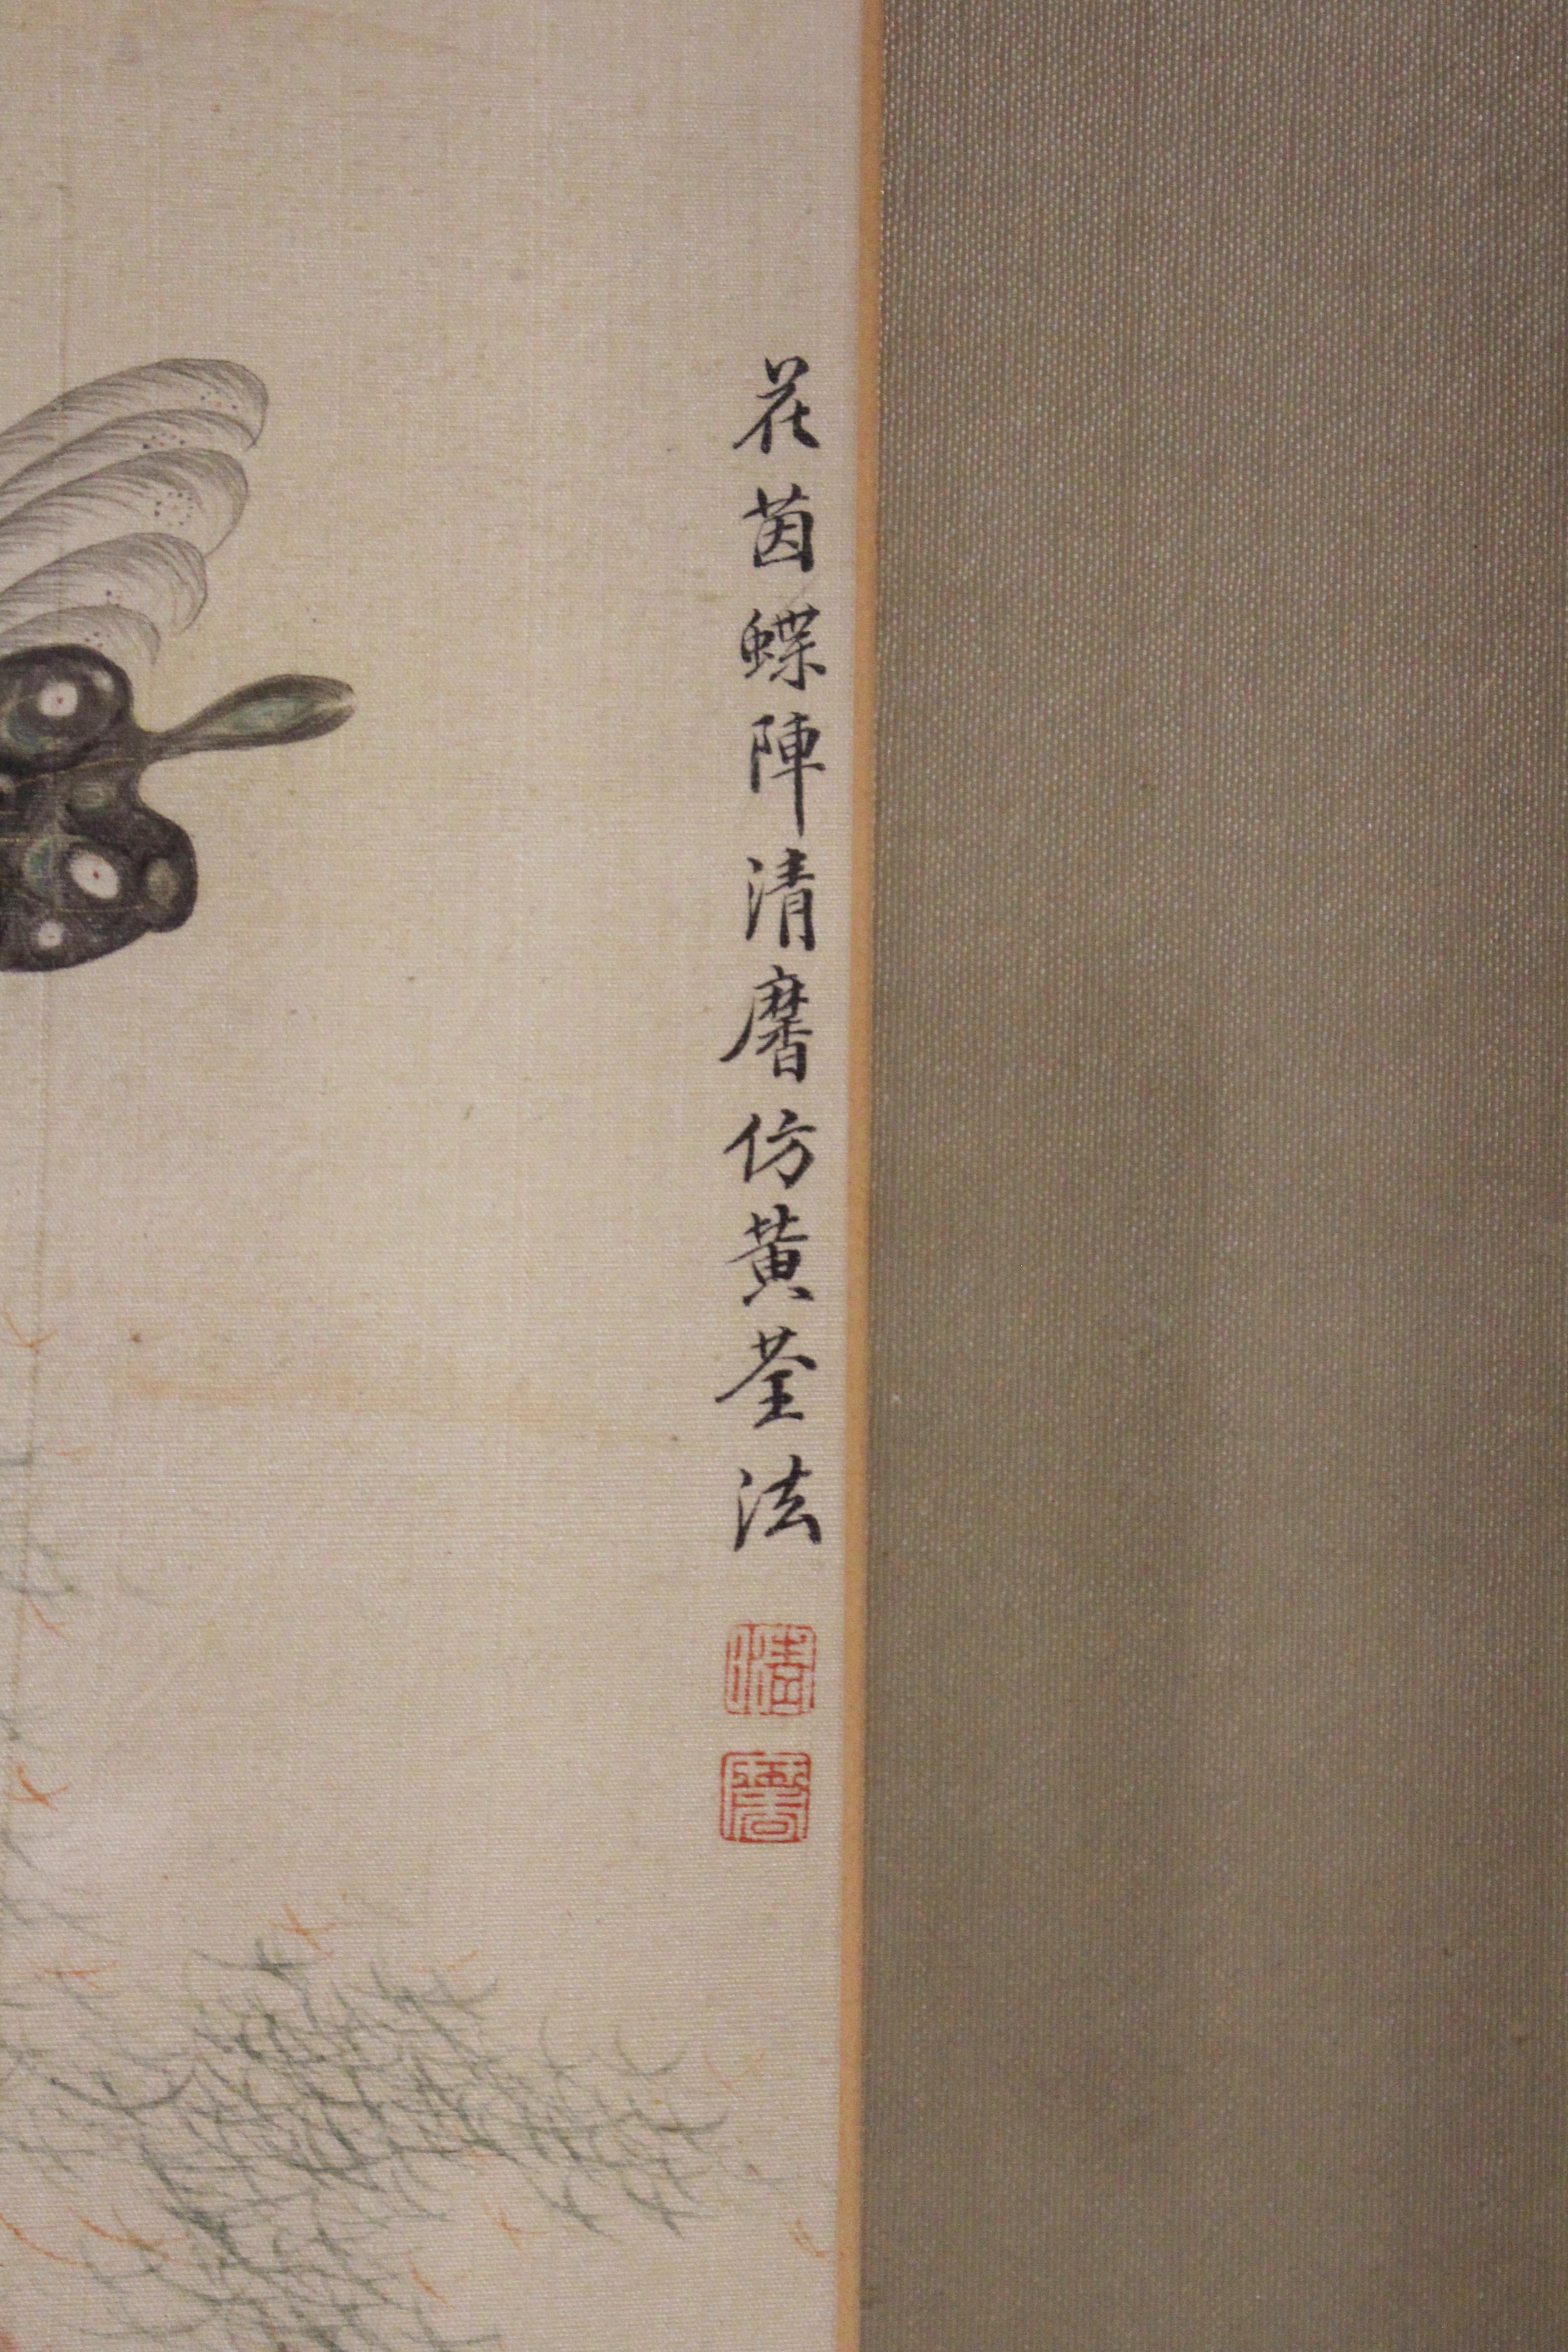 花茵蝶陣清麐仿黃荃法
清
麐